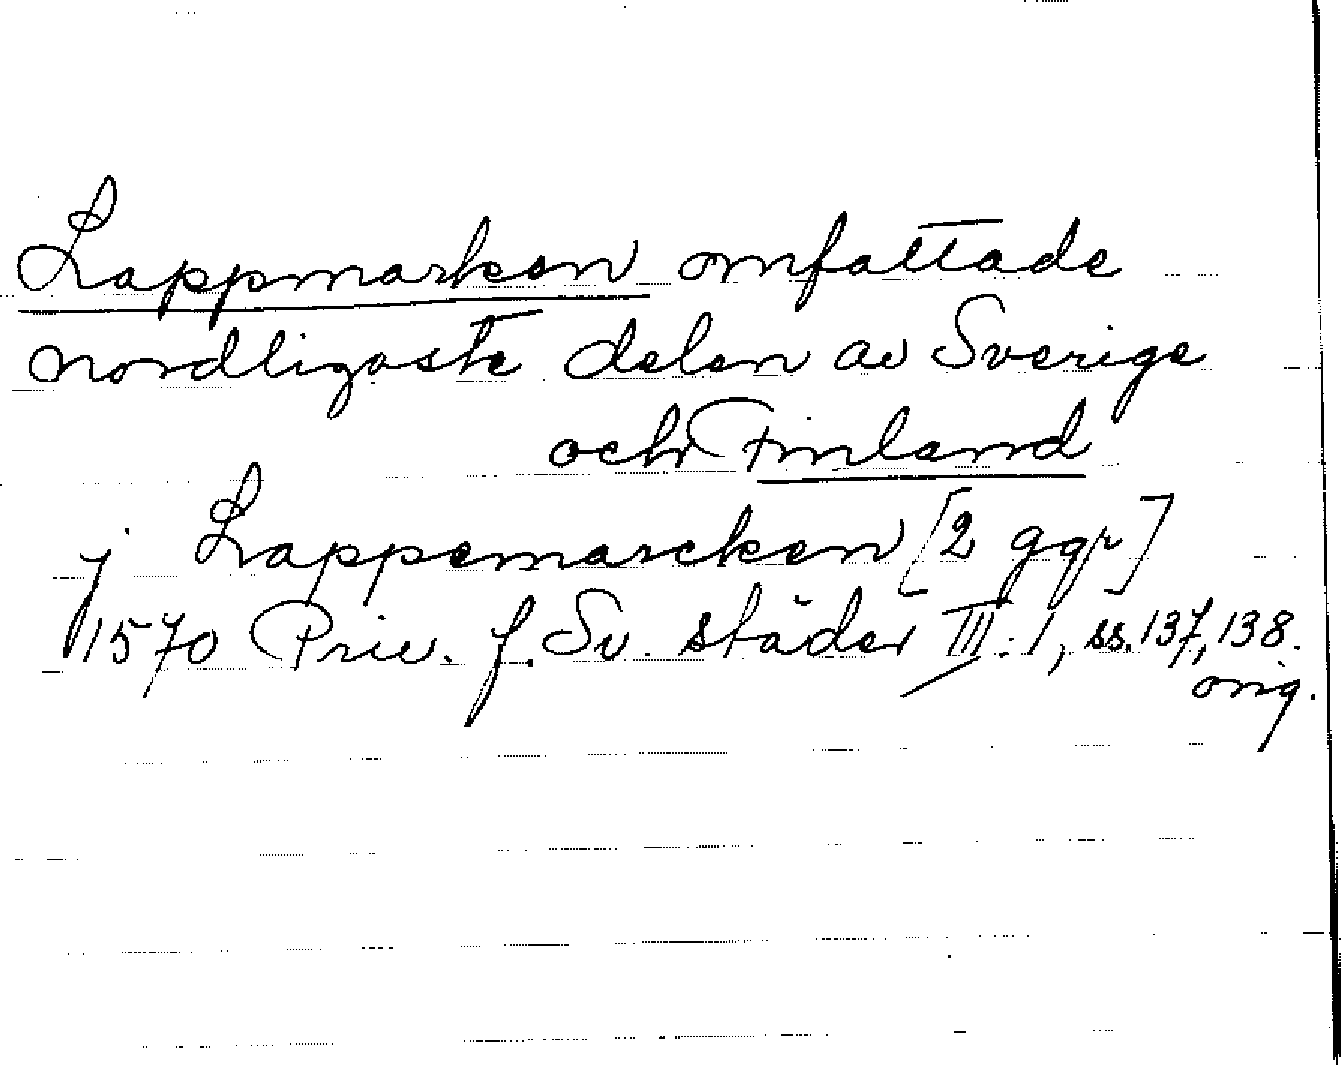 Lappmarken omfattade
nordligaste delen av Sverige
och Finland
j Lappemarcken [2 ggr]
1570 Priv. f. Sv. städer III:1, ss. 137, 138.
orig.